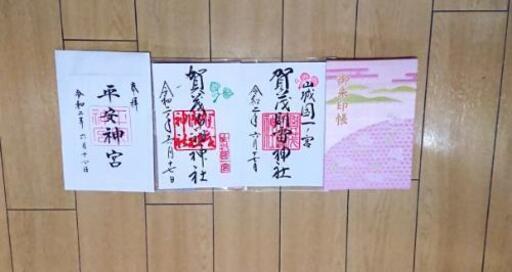 奉拝
平安神宮
令和二年 六月十七日
賀茂御祖神社
令和二年六月十七日
山城国一ノ宮
賀茂別雷神社
令和二年六月十七日
御朱印帳